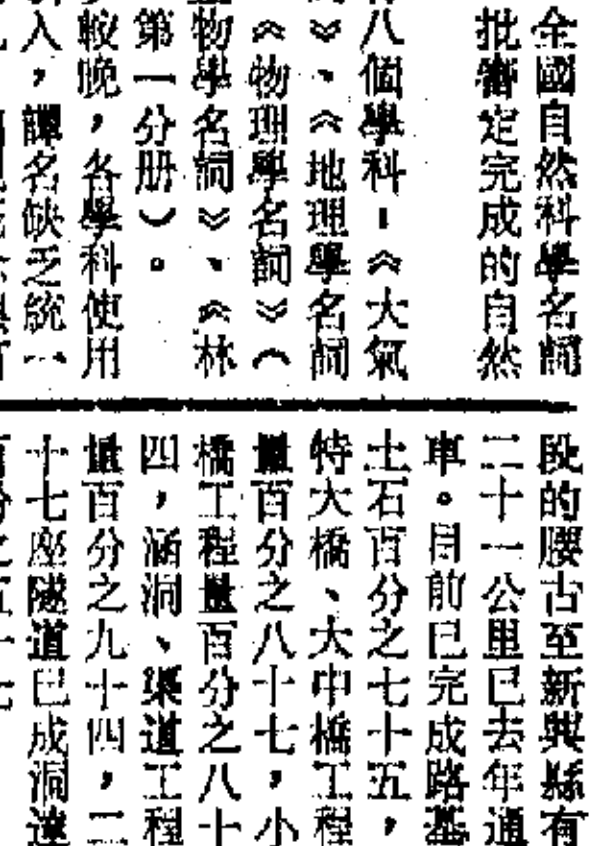 全國自然科學名詞
批審定完成的自然
八個學科:《大氣
》、《地理學名詞
《物理學名詞》(
物學名詞》、《林
第一分册)。
較晚,各學科使用
入,譯名缺乏統一
段的腰古至新興縣有
二十一公里已去年通
車。目前已完成路基
土石百分之七十五,
特大橋、大中橋工程
量百分之八十七,小
橋工程量百分之八十
四,涵洞、渠道工程
量百分之九十四,二
十七座隧道已成洞達